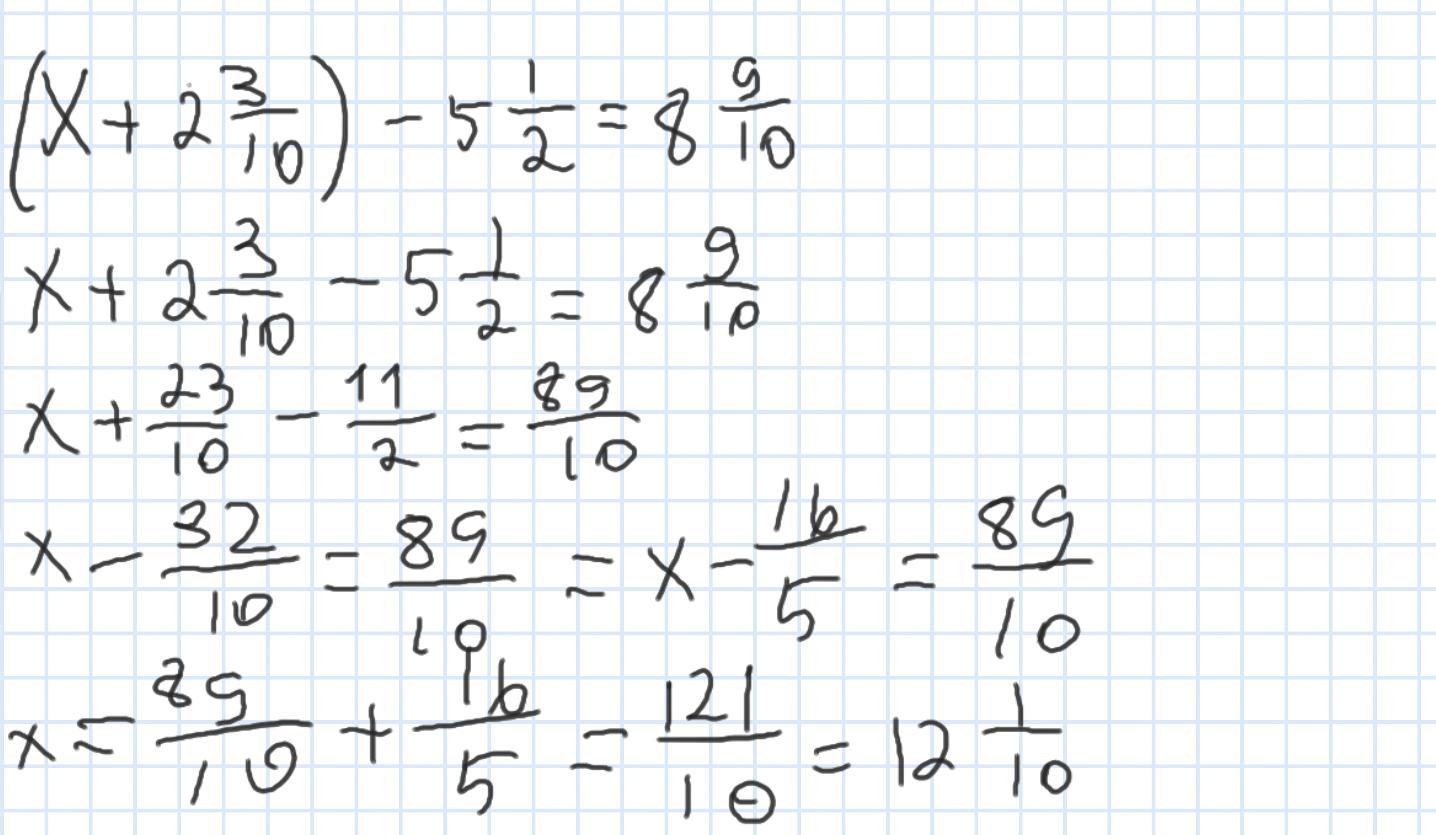 (X + 2 3/10) - 5 1/2 = 8 9/10
X + 2 3/10 - 5 1/2 = 8 9/10
X + 23/10 - 11/2 = 89/10
x - 32/10 = 89/10 = x - 16/5 = 89/10
x = 89/10 + 16/5 = 121/10 = 12 1/10